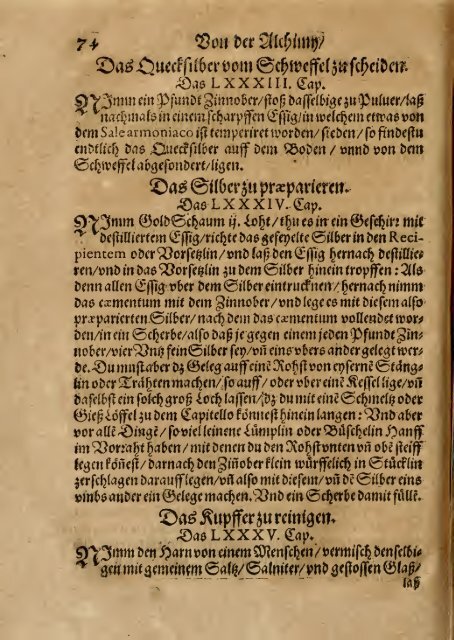 74 Von der Alchimy/
Das Quecksilber vom Schweffel zu scheiden.
Das LXXXIII. Cap.
NImm ein Pfundt Zinnober/stoß dasselbige zu Puluer/laß
nachmals in einem scharpffen Essig/in welchem etwas von
dem Sale armoniaco ist temperiret worden/sieden/so findestu
endtlich das Quecksilber auff dem Boden/vnnd von dem
Schweffel abgesondert/ligen.
Das Silber zu præparieren.
Das LXXXIV. Cap.
NImm Gold Schaum ij. Loht/thu es in ein Geschirr mit
destilliertem Essig/richte das gefeylte Silber in den Reci-
pientem oder Vorsetzlin/vnd laß den Essig hernach destillie-
ren/vnd in das Vorsetzlin zu dem Silber hinein tropffen: Als
denn allen Essig vber dem Silber eintrucknen/hernach nimm
das cæmentum mit dem Zinnober/vnd lege es mit diesem also
præparierten Silber/nach dem das cæmentum vollendet wor-
den/in ein Scherbe/also daß je gegen einem jeden Pfundt Zin-
nober/vier Vntz fein Silber sey/vñ eins vbers ander gelegt wer-
de. Du must aber dz Geleg auff eine Rohst von eysernẽ Stäng-
lin oder Trähten machen/so auff/oder vber einẽ Kessel lige/vñ
daselbst ein solch groß Loch lassen/dz du mit eine Schmeltz oder
Gieß Löffel zu dem Capitello könnest hinein langen: Vnd aber
vor allẽ Dingẽ/so viel leinene Lümplin oder Büschelin Hanff
im Vorraht haben/mit denen du den Rohst vnten vñ obẽ steiff
legen köñest/darnach den Ziñober klein würffelich in Stücklin
zerschlagen darauff legen/vñ also mit diesem/vñ dẽ Silber eins
vmbs ander ein Gelege machen. Vnd ein Scherbe damit füllẽ.
Das Kupffer zu reinigen.
Das LXXXV. Cap.
NImm den Harn von einem Menschen/vermisch denselbi-
gen mit gemeinem Saltz/Salniter/vnd gestossen Glaß/
laß